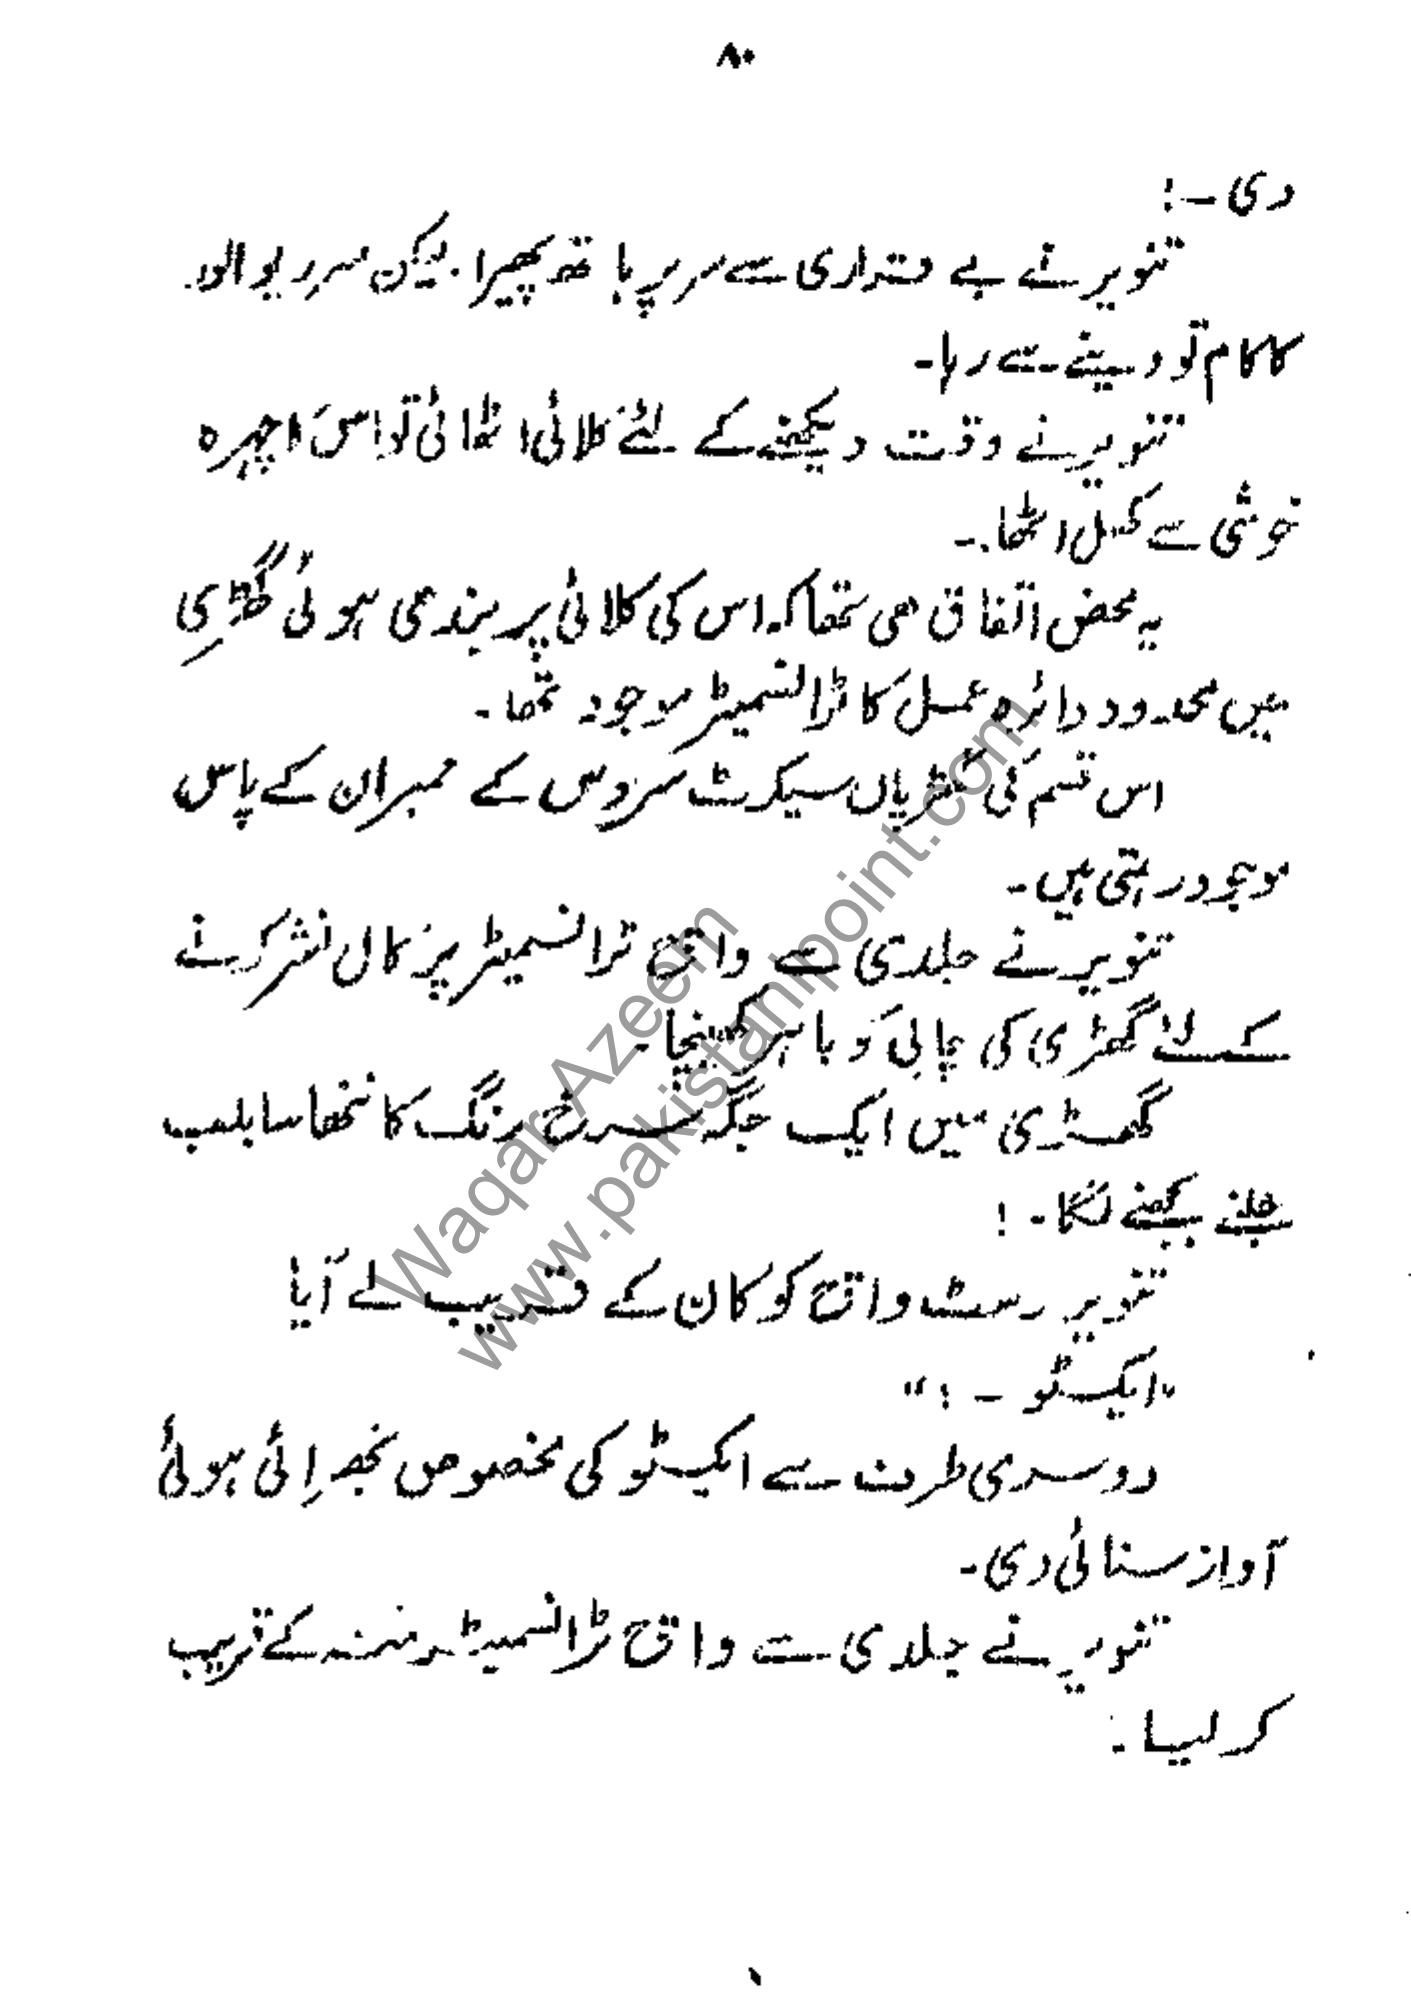 ۸۰
دی ۔!
تنویر نے بے قراری سے سر پر ہاتھ پھیرا۔ لیکن سر ریوالور
کا کام تو دینے سے رہا۔
تنویر نے وقت دیکھنے کے لئے کلائی اٹھائی تو اس کا چہرہ
خوشی سے کھل اٹھا۔
یہ محض اتفاق ھی تھا کہ اس کی کلائی پر بندھی ہوئی گھڑی
میں محدود دائرہ عمل کا ٹرانسمیٹر موجود تھا۔
اس قسم کی گھڑیاں سیکرٹ سروس کے ممبران کے پاس
موجود رہتی ہیں۔
تنویر نے جلدی سے واچ ٹرانسمیٹر پر کال نشر کرنے
کے لئے گھڑی کی چابی کو باہر کھینچا۔
گھڑی میں ایک جگہ سرخ رنگ کا ننھا سا بلب
جلنے بجھنے لگا۔ !
تنویر رسٹ واچ کو کان کے قریب لے آیا
"ایکسٹو ۔ !"
دوسری طرف سے ایکسٹو کی مخصوص بھرائی ہوئی
آواز سنائی دی۔
تنویر نے جلدی سے واچ ٹرانسمیٹر منہ کے قریب
کر لیا۔
Waqar Azeem
www.pakistanipoint.com